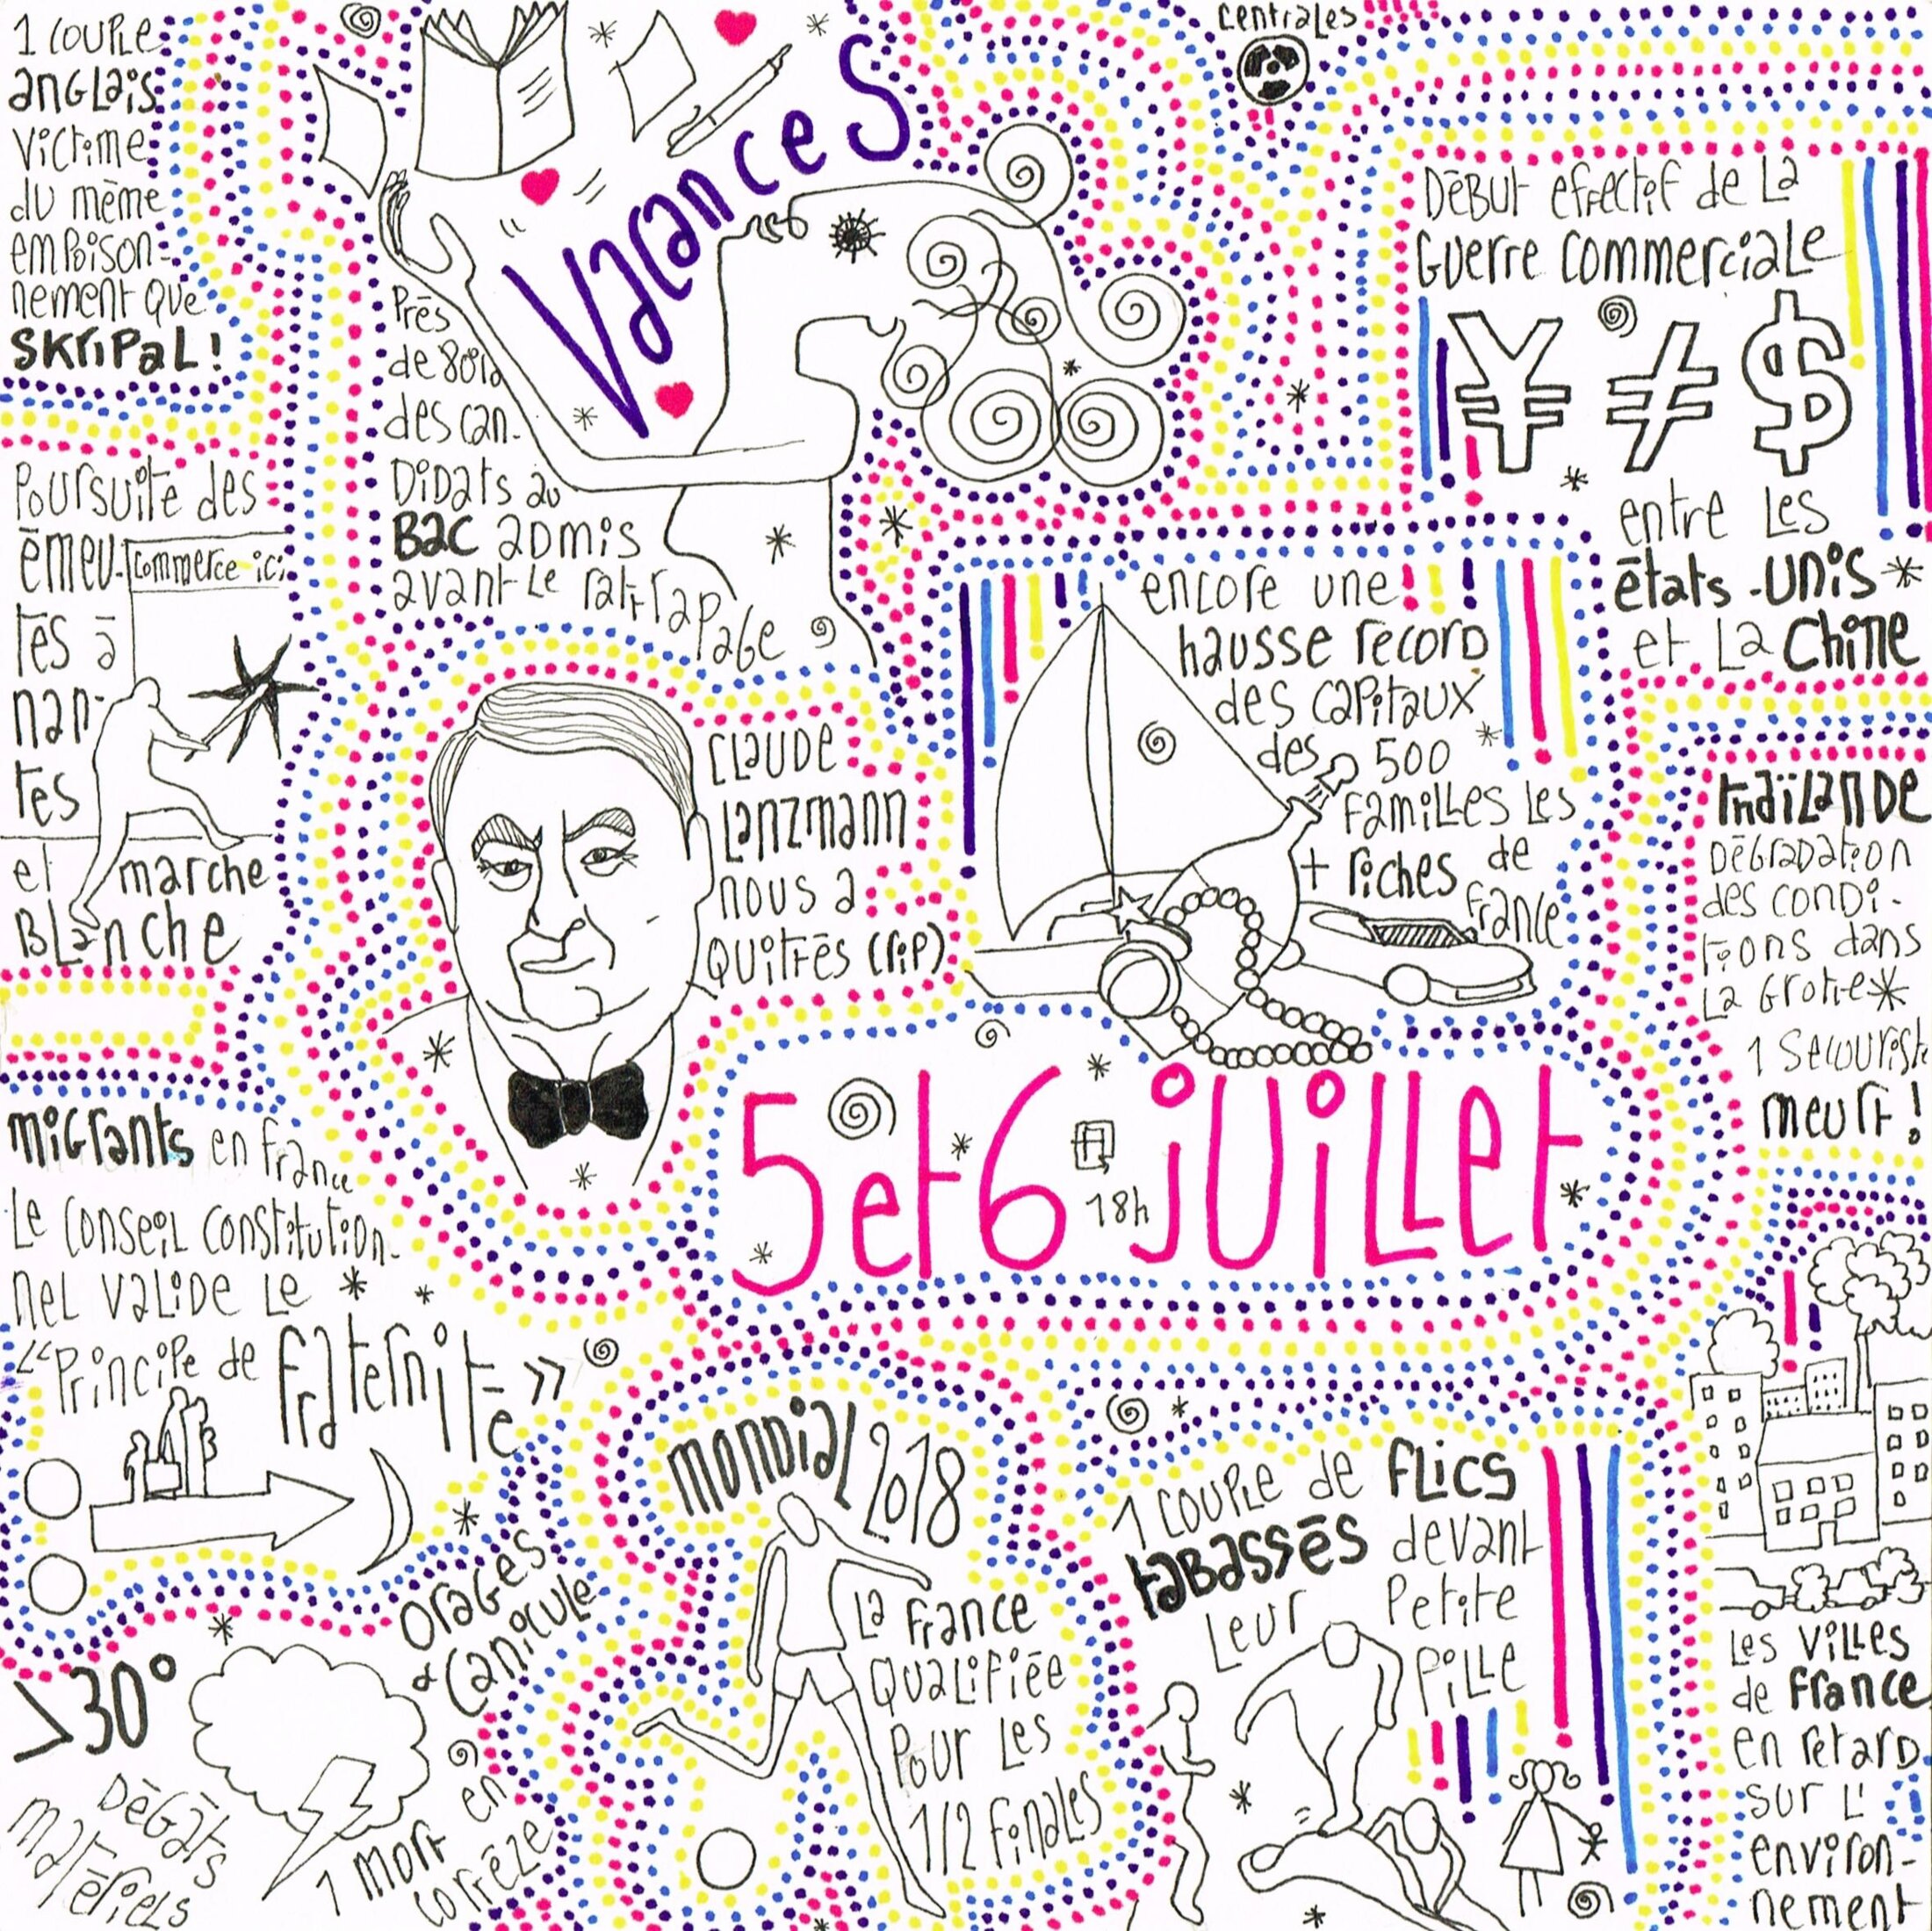 1 couple
anglais
victime
du même
empoison-
nement que
SKripal !
Vacances
centrales
Début effectif de la
Guerre commerciale
¥ ≠ $
entre les
états-unis
et la Chine
Près
de 80%
des can-
didats au
Bac admis
avant le rattrapage
Poursuite des
émeu-
tes à
nan-
tes
et marche
Blanche
commerce ici
encore une
hausse record
des capitaux
des 500
familles les
+ riches de
france
Claude
Lanzmann
nous a
quittés (rip)
Thaïlande
Dégradation
des condi-
tions dans
la grotte
1 secouriste
meurt !
5 et 6 juillet
18h
migrants en france
Le conseil constitution-
nel valide le
"Principe de fraternité"
mondial 2018
La france
qualifiée
pour les
1/2 finales
1 couple de flics
tabassés devant
leur petite
fille
orages
& canicule
>30°
Dégâts
matériels
1 mort en
corrèze
Les villes
de france
en retard
sur l'
environ-
nement